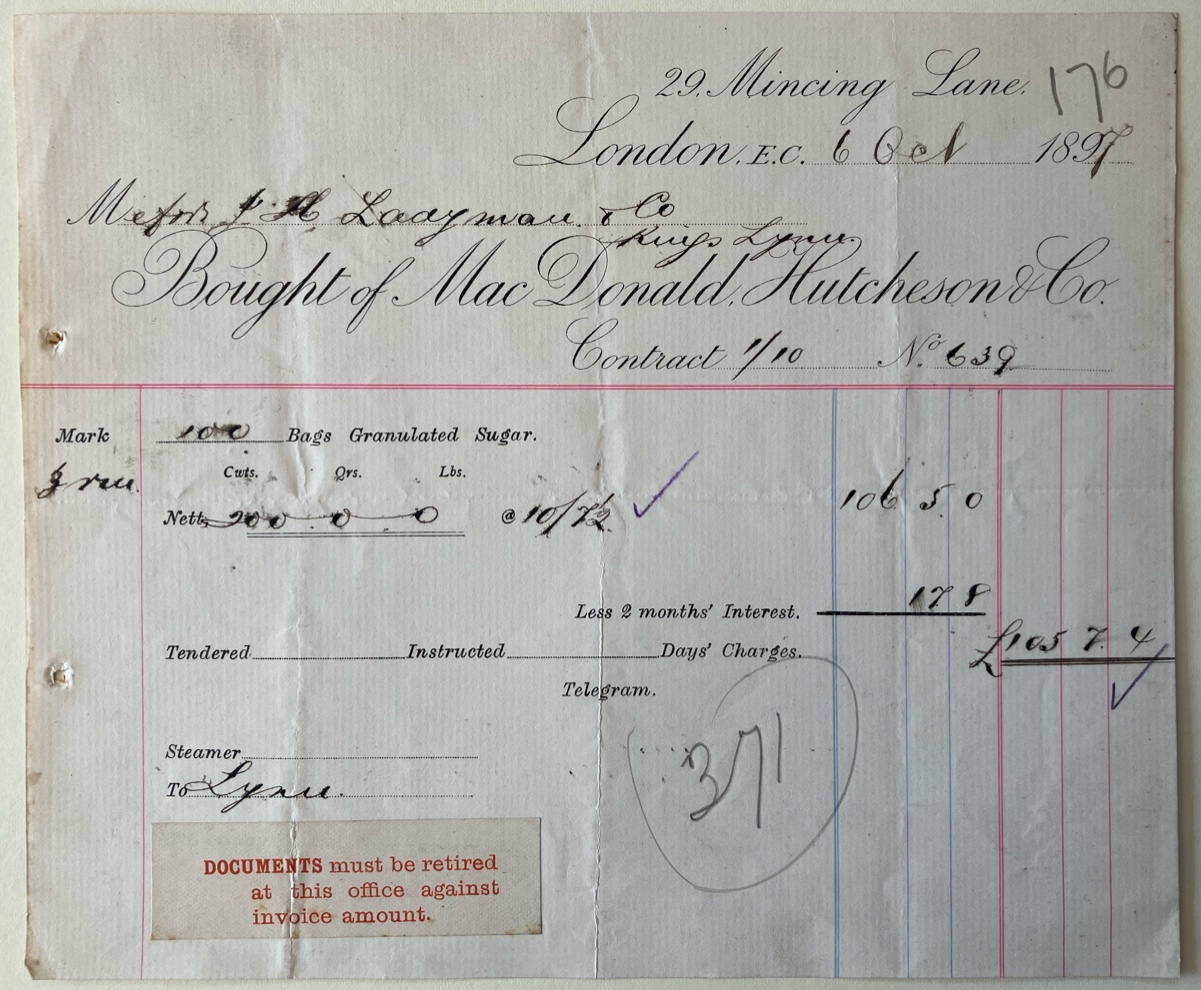 29. Mincing Lane. 176
London, E.C. 6 Oct 1897
Messrs H Laayman & Co
Kings Lynn
Bought of Mac Donald, Hutcheson & Co.
Contract 1/10 No. 639
Mark 100 Bags Granulated Sugar.
Cwts. Qrs. Lbs.
Nett, 200 0 0 @ 10/7½ 106 5 0
Less 2 months' Interest. 17 8
£105 7 4
Tendered Instructed Days' Charges.
Telegram.
371
Steamer
To Lynn.
DOCUMENTS must be retired
at this office against
invoice amount.